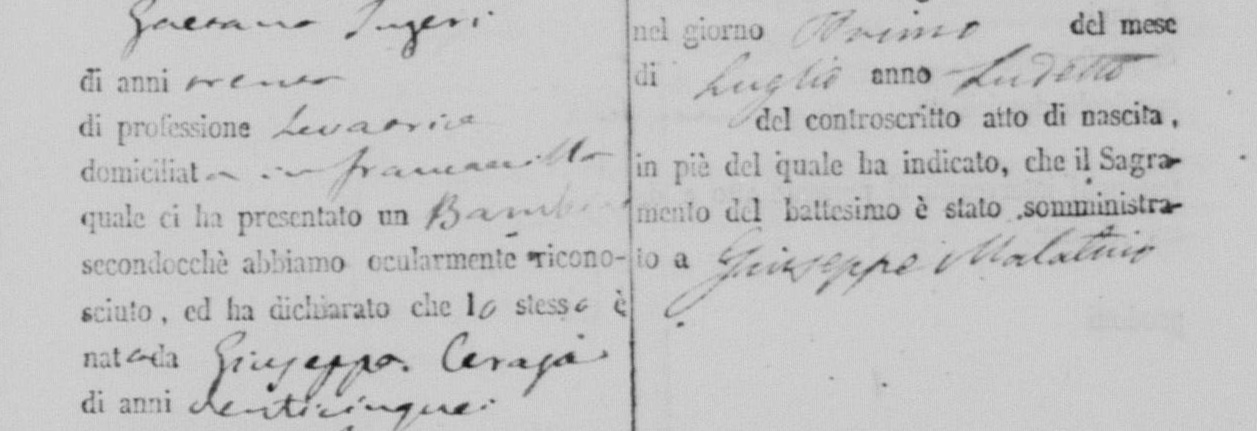 Gaetano Ingeri
di anni
di professione Levatrice
domiciliata in francavilla
quale ci ha presentato un Bambino
secondocchè abbiamo ocularmente ricono-
sciuto, ed ha dichiarato che lo stesso è
nato da Giuseppa Ceraja
di anni venticinque
nel giorno Primo del mese
di Luglio anno sudetto
del controscritto atto di nascita,
in piè del quale ha indicato, che il Sagra-
mento del battesimo è stato somministra-
to a Giuseppe Malatino